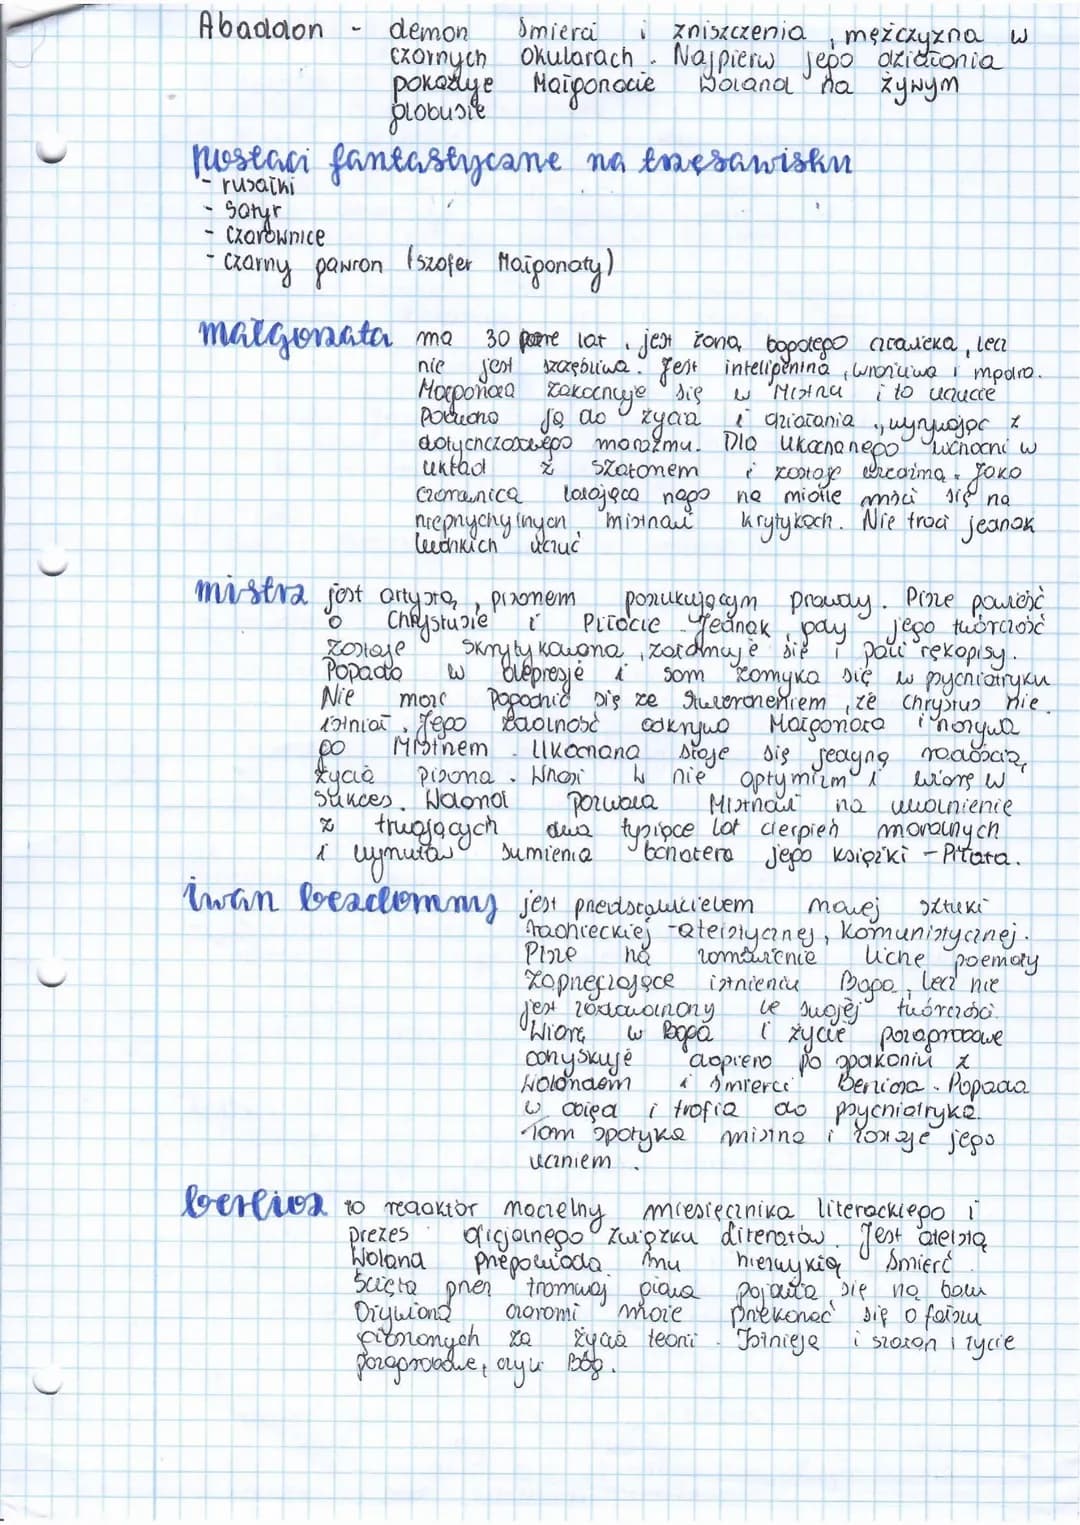 Abaddon - demon śmierci i zniszczenia, mężczyzna w
czarnych okularach. Najpierw jego działania
pokazuje Małgorzacie Woland na żywym
globusie
postaci fantastyczne na trzęsawisku
- rusałki
- satyr
- czarownice
- czarny gawron (szofer Małgorzaty)
małgorzata ma 30 parę lat, jest żoną bogatego człowieka, lecz
nie jest szczęśliwa. Jest inteligentna, wrażliwa i mądra.
Małgorzata zakochuje się w Mistrzu i to uczucie
pobudza ją do życia i działania, wyrywając z
dotychczasowego marazmu. Dla ukochanego wchodzi w
układ z szatanem i zostaje wiedźmą. Jako
czarownica latająca nago na miotle mści się na
nieprzychylnych mistrzowi krytykach. Nie traci jednak
ludzkich uczuć
mistrz jest artystą, pisarzem poszukującym prawdy. Pisze powieść
o Chrystusie i Piłacie. Jednak, gdy jego twórczość
zostaje skrytykowana, załamuje się i pali rękopisy.
Popada w depresję i sam zamyka się w psychiatryku
Nie może pogodzić się ze stwierdzeniem, że chrystus nie
istniał. Jego zdolność odkrywa Małgorzata i nazywa
go Mistrzem. Ukochana staje się jedyną radością
życia pisarza. Wnosi w nie optymizm i wiarę w
sukces. Woland pozwala Mistrzowi na uwolnienie
z trwających dwa tysiące lat cierpień moralnych
i wyrzutów sumienia bohatera jego książki - Piłata.
iwan bezdomny jest przedstawicielem małej sztuki
radzieckiej - ateistycznej, komunistycznej.
Pisze na zamówienie liche poematy
zaprzeczające istnieniu Boga, lecz nie
jest zadowolony ze swojej twórczości.
Wiarę w Boga i życie pozagrobowe
odzyskuje dopiero po spotkaniu z
Wolandem i śmierci Berlioza. Popada
w obłęd i trafia do psychiatryka.
Tam spotyka mistrza i zostaje jego
uczniem.
berlioz to redaktor naczelny miesięcznika literackiego i
prezes oficjalnego związku literatów. Jest ateistą
Woland przepowiada mu niezwykłą śmierć.
Ścięta przez tramwaj głowa pojawia się na balu
Ożywiona czarami może przekonać się o fałszu
głoszonych za życia teorii. Istnieje i szatan i życie
pozagrobowe, czyli Bóg.